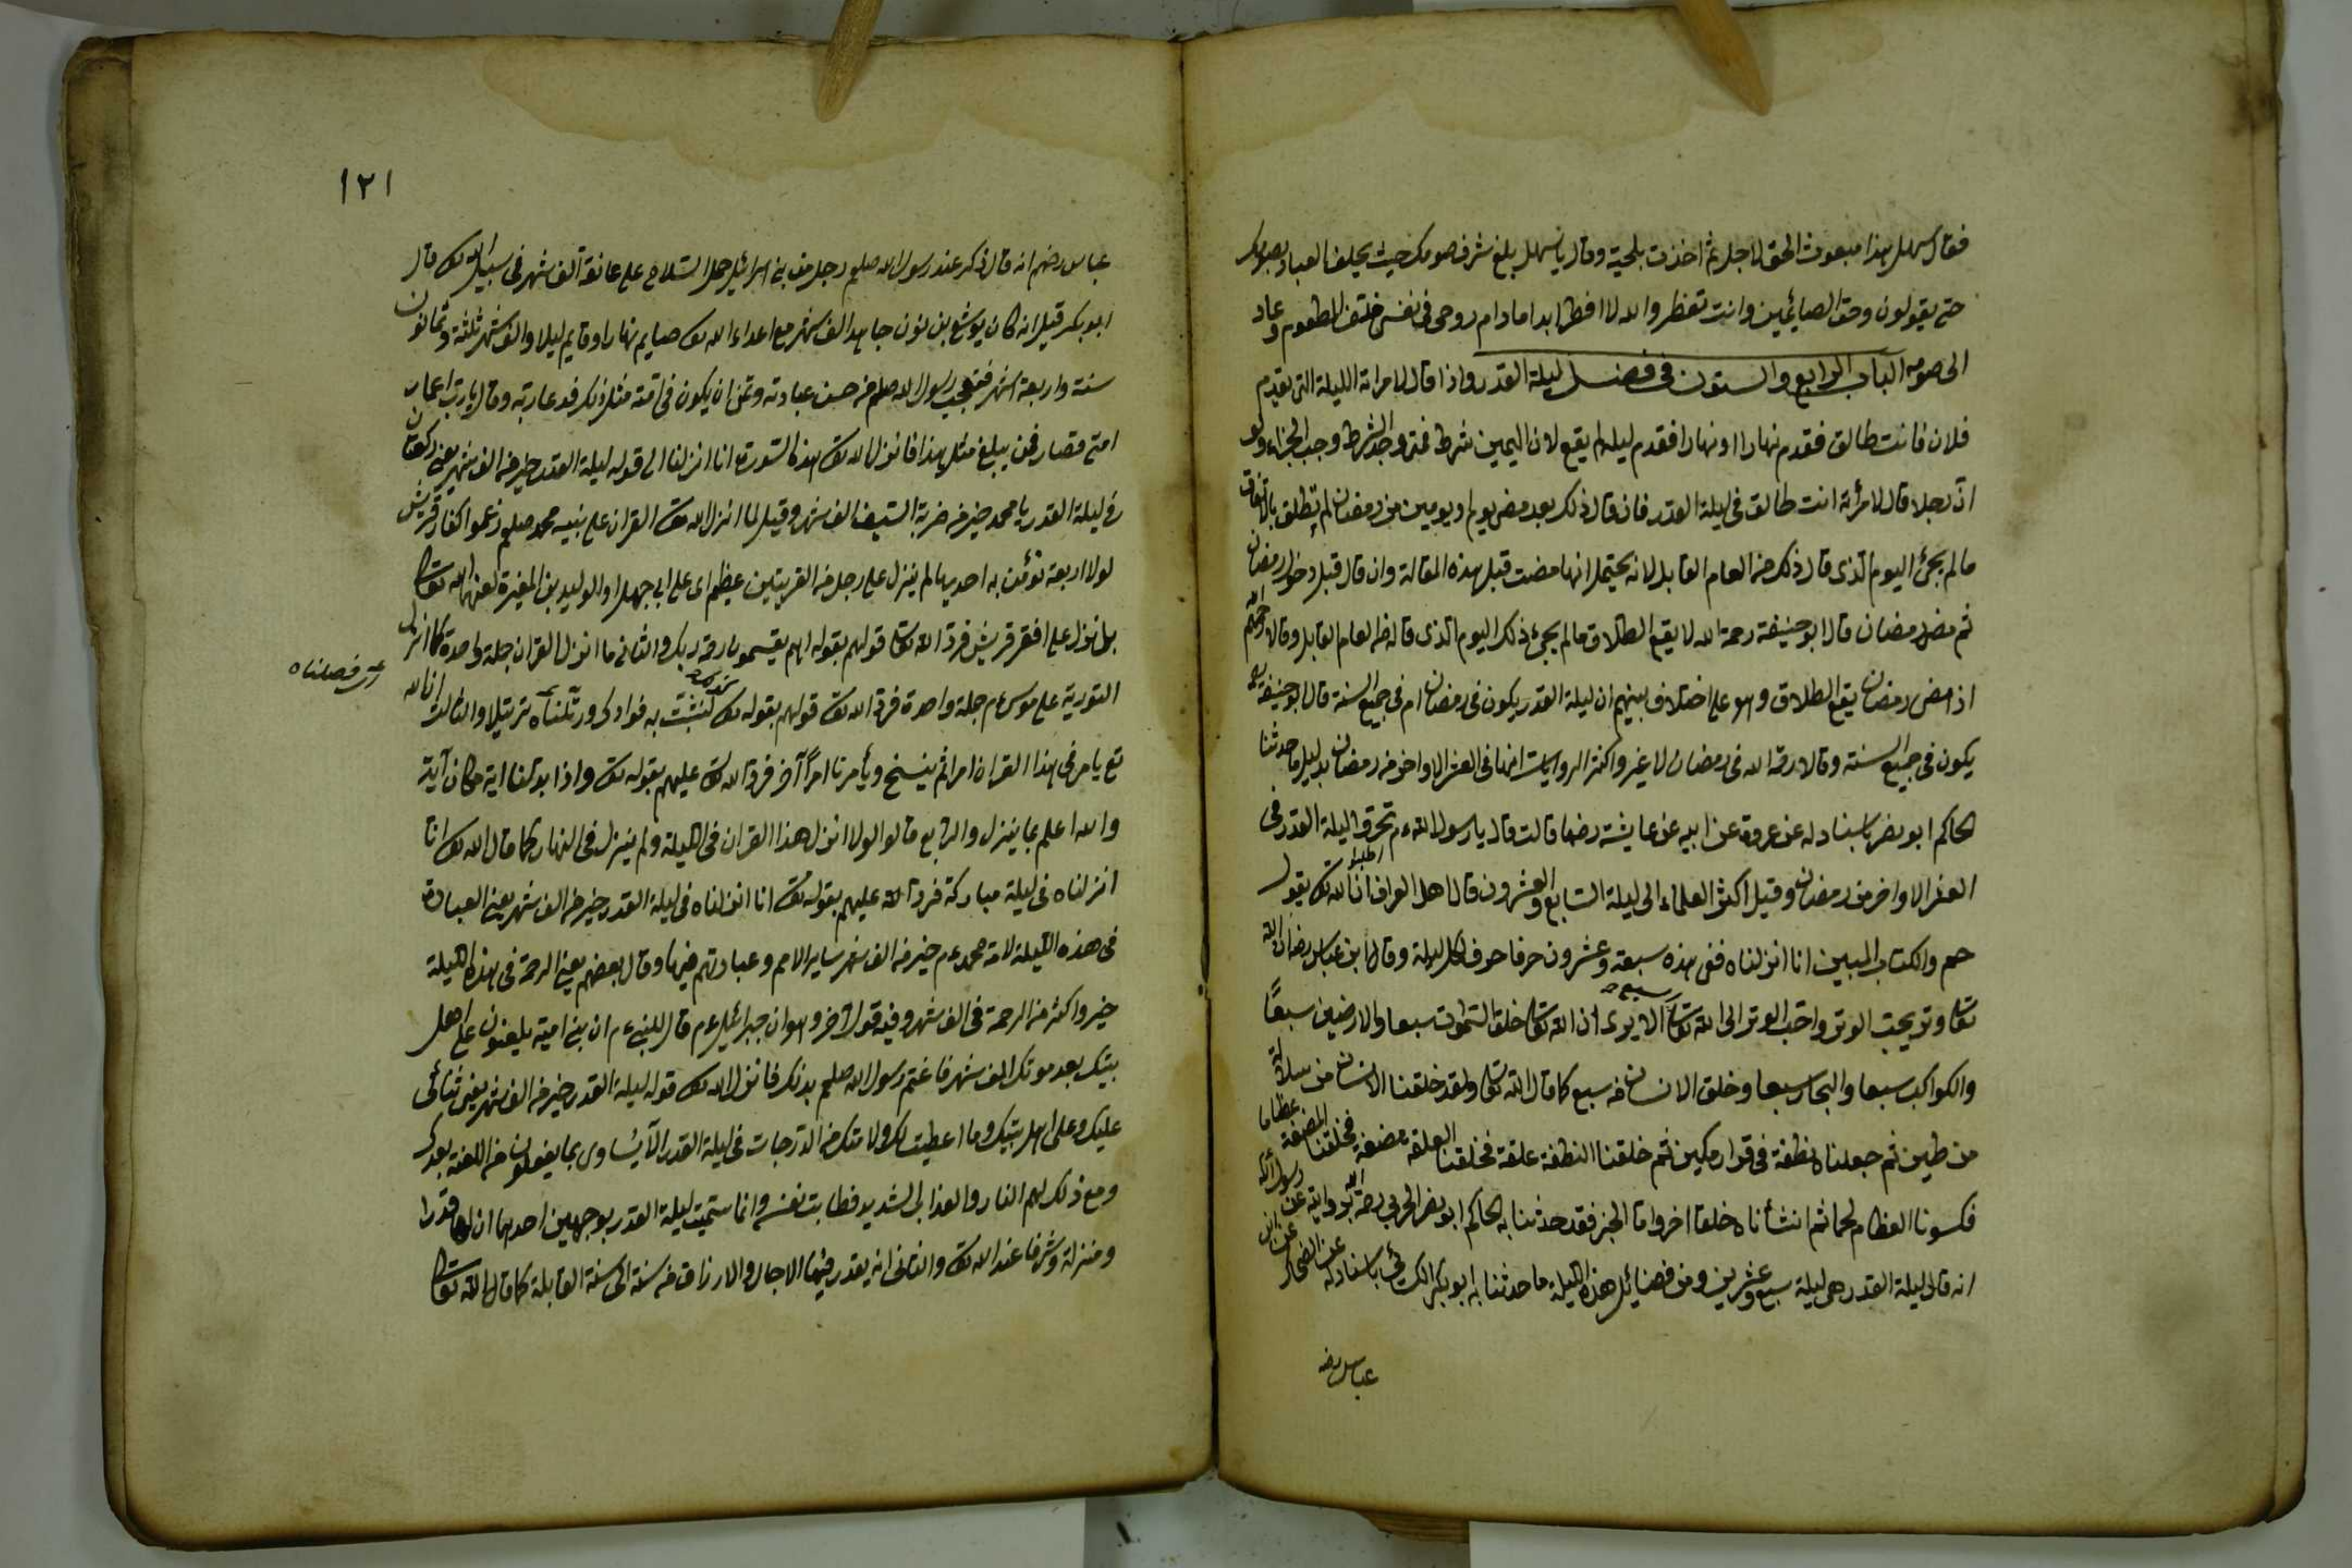 فقال سهل هذا مبعوث الحق لاجل ثم اخذت بلحية وقال يا سهل بلغ شرف صومك حيث يحلف العباد بصومك
حتى يقولون وحق الصايمين وانت تفطر والله لا افطر ابدا مادام روحى فى نفسى فترك المطعوم وعاد
الى صومه الباب الرابع والستون فى فضل ليلة القدر واذا قال لامراته الليلة التى يقدم
فلان فانت طالق فقدم نهارا او نهارا فقدم ليلا لم يقع لان اليمين شرط فمتى وجد الشرط وجب الجزاء ولو
ان رجلا قال لامرئة انت طالق فى ليلة القدر فان قال ذلك بعد مضى يوم او يومين من رمضان لم تطلق بالاتفاق
مالم يجئ اليوم الذى قال ذلك من العام القابل لانه يحتمل انها مضت قبل هذه المقالة وان قال قبل دخول رمضان
ثم مضى رمضان قال ابو حنيفة رحمة الله لا يقع الطلاق مالم يجئ ذلك اليوم الذى قال من العام القابل وقالا رحمهم الله
اذ امضى رمضان يقع الطلاق وهو على اختلاف بينهم ان ليلة القدر يكون فى رمضان ام فى جميع السنة قال ابو حنيفة
يكون فى جميع السنة وقالا رحمة الله فى رمضان لا غير واكثر الروايات انها فى العشر الاواخر من رمضان بدليل ما حدثنا
الحاكم ابو نصر باسناد له عن عروة عن ابيه عن عايشة رضها قالت قال يا رسول الله ءم تحروا ليلة القدر فى
العشر الاواخر من رمضان وقيل اكثر العلماء الى ليلة السابع والعشرون قال اهل العراف ان الله تعالى يقول
حم والكتاب المبين انا انزلناه ففى هذه سبعة وعشرون حرفا حرف لكل ليلة وقال ابن عباس رضى ان الله
تعالى وتر يحب الوتر واحب الوتر الى الله تعالى سبع الا يرى ان الله تعالى خلق السموت سبعا والارضين سبعا
والكواكب سبعا والبحار سبعا وخلق الانسان من سبع كما قال الله تعالى ولقد خلقنا الانسان من سلالة
من طين ثم جعلناه نطفة فى قرار مكين ثم خلقنا النطفة علقة فخلقنا العلقة مضغة فخلقنا المضغة عظاما
فكسونا العظام لحما ثم انشأناه خلقا اخر واما الخبر فقد حدثنا به الحاكم ابو نصر الحربى رحمة الله برواية عن رسول الله
انه قال ليلة القدر هى ليلة سبع وعشرين ومن فضايل هذه الليلة ما حدثنا به ابو بكر باسناد له عن الضحاك عن ابن
عباس رضه
١٢١
عباس رضهم انه قال ذكر عند رسول الله صلعم رجل من بنى اسرائيل حمل السلاح على عاتقه الف شهر فى سبيل الله تعالى قال
ابو بكر قيل انه كان يوشع بن نون جاهد الف شهر مع اعداء الله تعالى صايم نهارا وقايم ليلا والف شهر ثلثة وثمانون
سنة واربعة اشهر فتعجب رسول الله صلعم من حسن عبادته وتمنى ان يكون فى امته مثل ذلك فدعا ربه وقال يا رب اعمار
امتى قصار فمن يبلغ مثل هذا فانزل الله تعالى هذه السورة انا انزلنا الى قوله ليلة القدر خير من الف شهر يعنى ركعتان
فى ليلة القدر يا محمد خير من ضربة السيف الف شهر وقيل لما انزل الله تعالى القران على نبيه محمد صلعم زعموا كفار قريش
لولا اربعة نؤمن به احديها لم ينزل على رجل من القريتين عظيم اى على ابى جهل او الوليد بن المغيرة لعنهما الله تعالى
بل نزل على افقر قريش فرد الله تعالى قولهم بقوله اهم يقسمون رحمة ربك والثانى ما انزل القران جملة واحدة كما انزل
التورية على موسى ءم جملة واحدة فرد الله تعالى قولهم بقوله تعالى لنثبت به فوادك ورتلناه ترتيلا والثالث ان الله
اى فصلناه
تع يامر فى هذا القران امرا ثم ينسخ ويأمرنا امرا آخر فرد الله تعالى عليهم بقوله تعالى واذا بدلنا اية مكان آية
والله اعلم بما ينزل والرابع قالوا لولا انزل هذا القران فى الليلة ولم ينزل فى النهار كما قال الله تعالى انا
انزلناه فى ليلة مباركة فرد الله عليهم بقوله تعالى انا انزلناه فى ليلة القدر خير من الف شهر يعنى العبادة
فى هذه الليلة لامة محمد ءم خير من الف شهر ساير الامم وعبادتهم فيها وقال بعضهم يعنى الرحمة فى هذه الليلة
خير واكثر من الرحمة فى الف شهر وفيه قول اخر وهو ان جبرائيل ءم قال للنبى ءم ان بنى امية يلعنون على اهل
بيتك بعد موتك الف شهر فاغتم رسول الله صلعم بذلك فانزل الله تعالى قوله ليلة القدر خير من الف شهر يعنى ثنائى
عليك وعلى اهل بيتك وما اعطيت لك ولامتك من الدرجات فى ليلة القدر الا يساوى بما يفعلون من اللعنة بعدك
ومع ذلك لهم النار والعذاب الشديد فطابت نفسه وانما سميت ليلة القدر بوجهين احدهما ان لها قدرا
ومنزلة وشرفا عند الله تعالى والثانى انه يقدر فيها الاجال والارزاق من سنة الى سنة القابلة كما قال الله تعالى